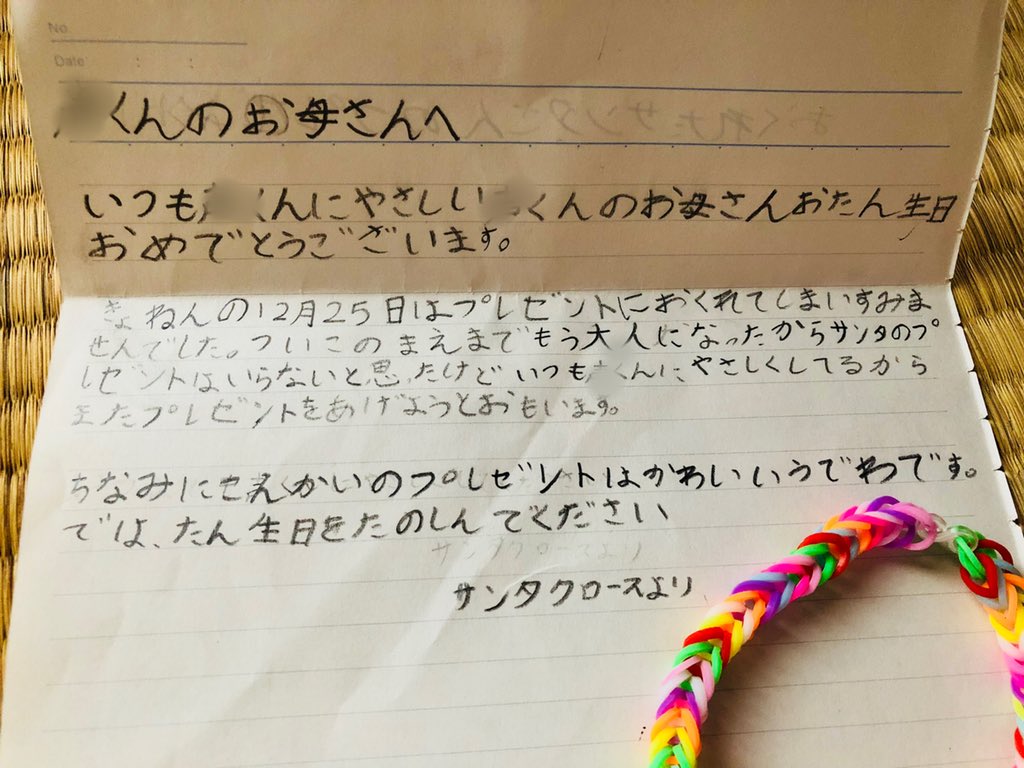 No
Date : :
くんのお母さんへ
いつも くんにやさしい くんのお母さんおたん生日
おめでとうございます。
きょねんの12月25日はプレゼントにおくれてしまいすみま
せんでした。ついこのまえまでもう大人になったからサンタのプ
レゼントはいらないと思ったけどいつも くんにやさしくしてるから
またプレゼントをあげようとおもいます。
ちなみに かいのプレゼントはかわいいうでわです。
では、たん生日をたのしんでください
サンタクロースより
サンタクロースより